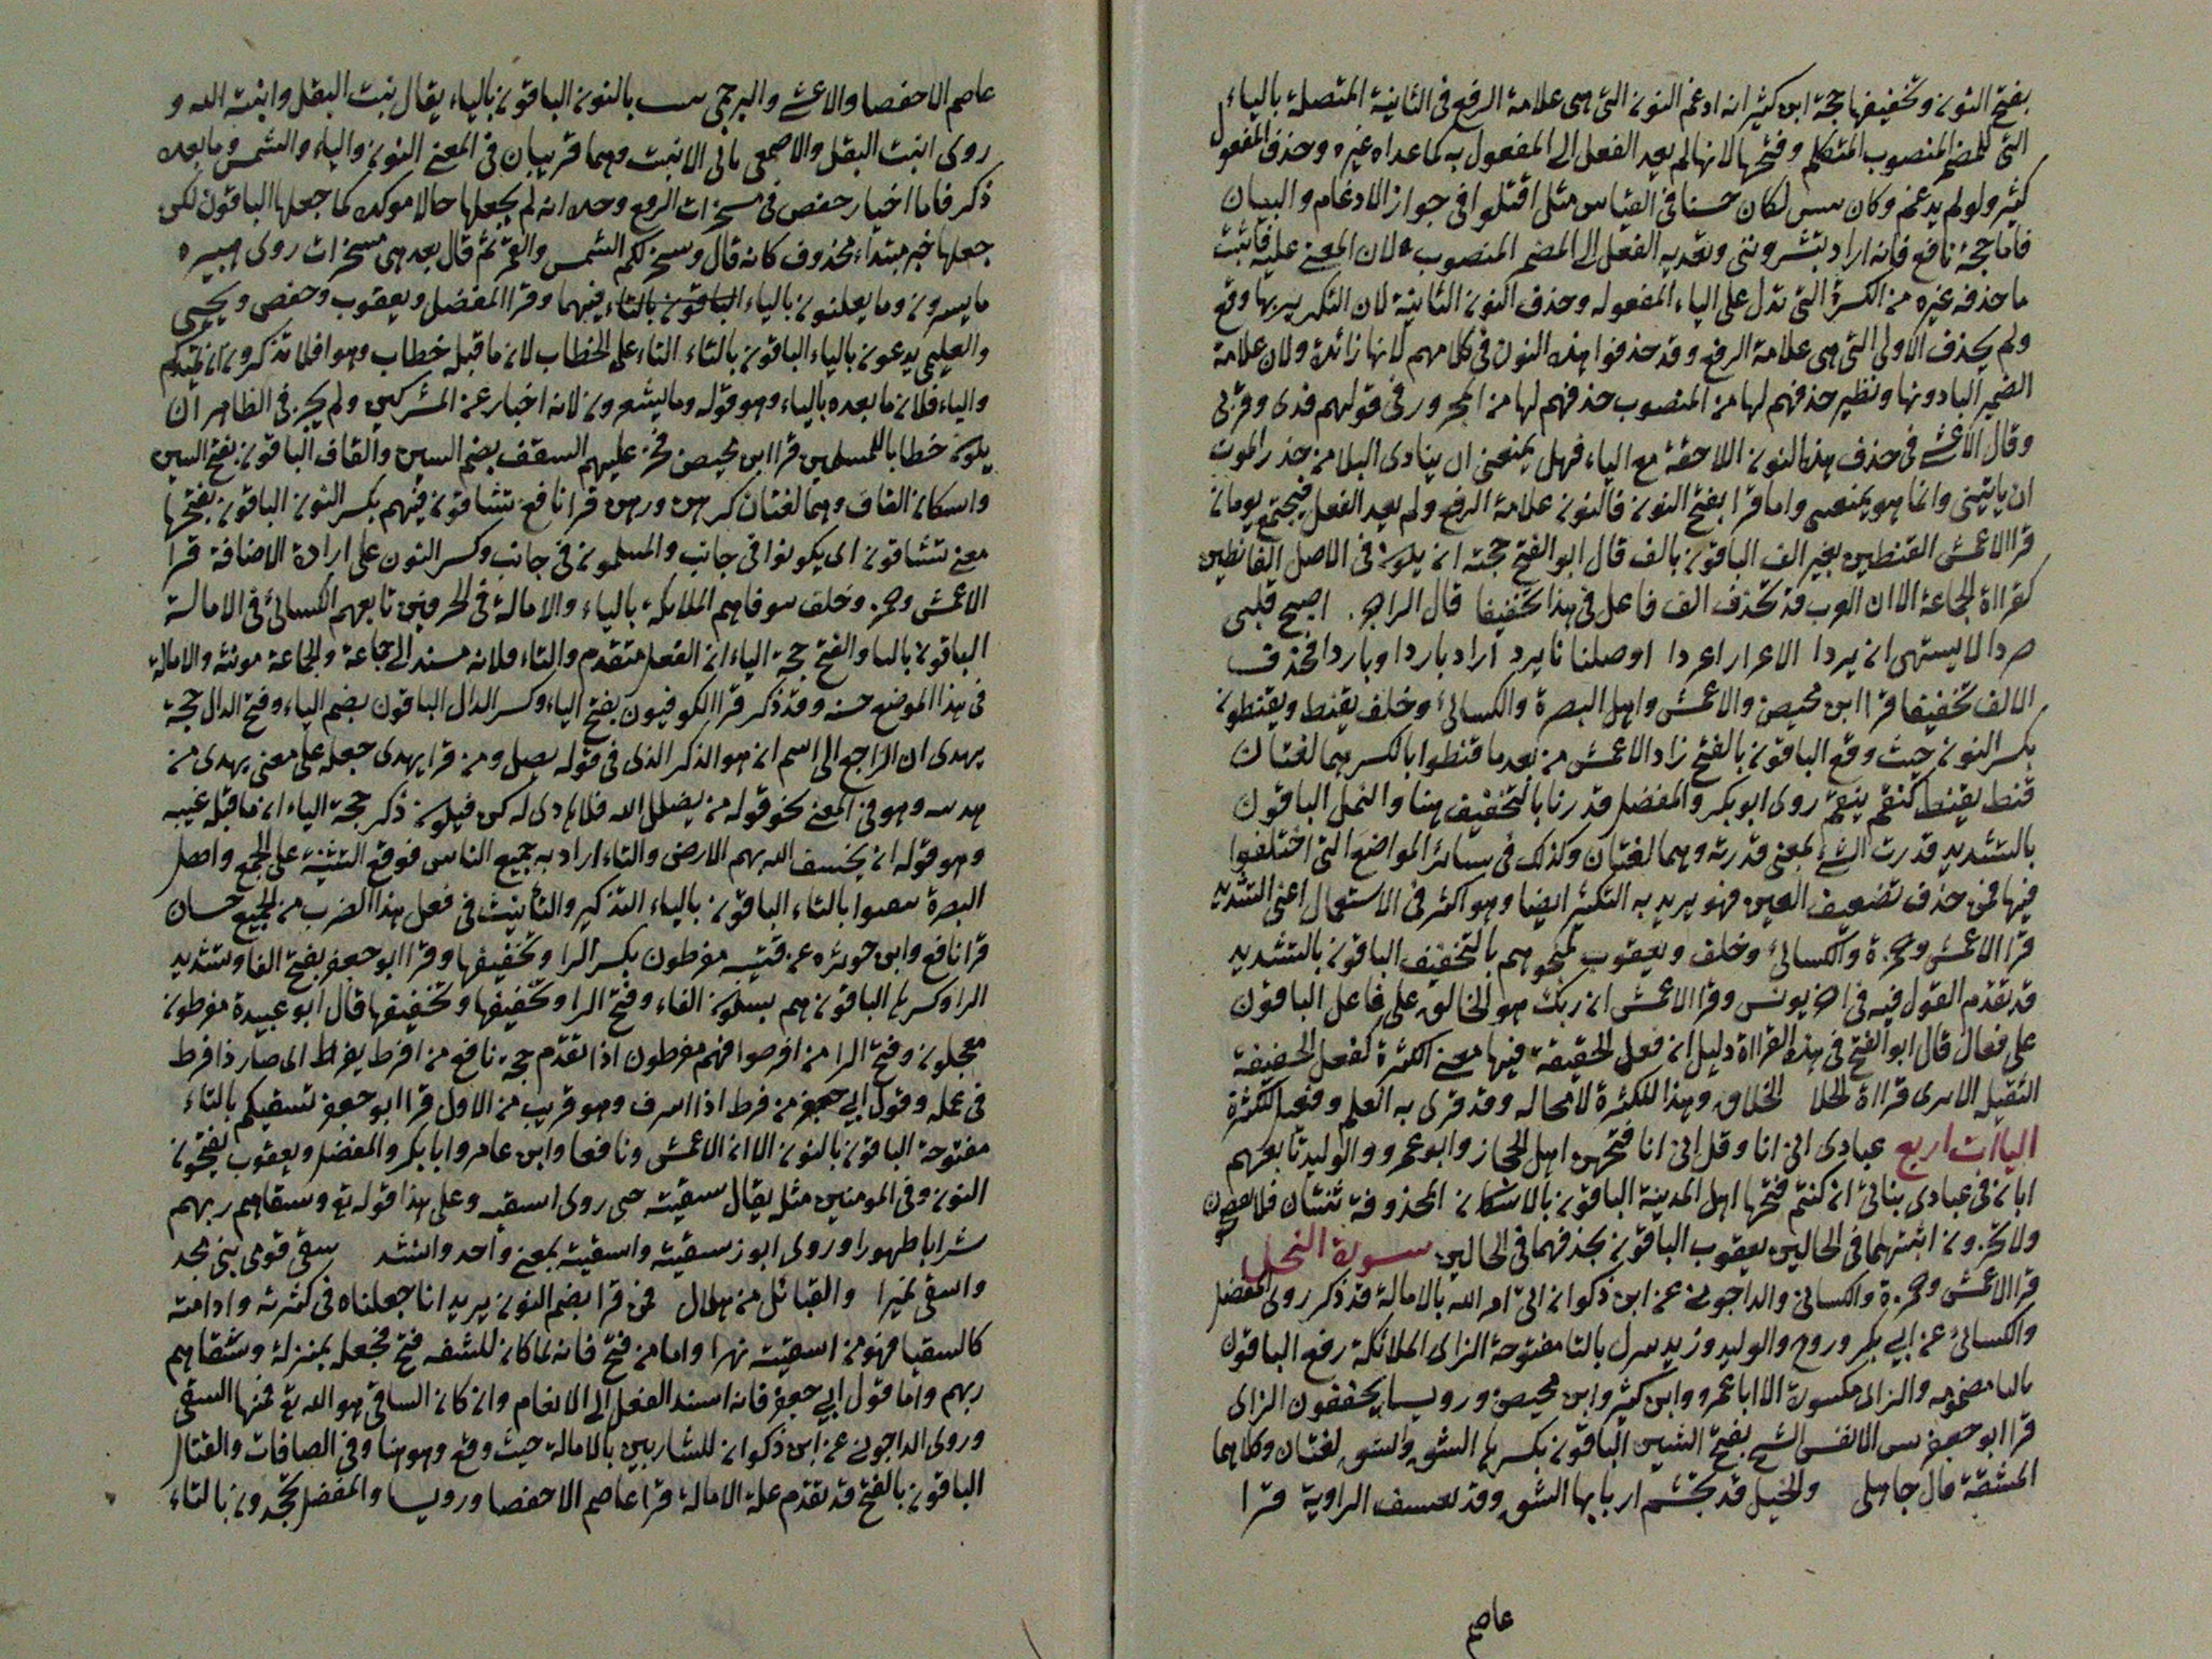 بفتح النون وتخفيفها حجة ابن كثير انه ادغم النون التى هى علامة الرفع فى الثانية المتصلة بالياء
التى للمضمر المنصوب المتكلم وفتحها لانها لم يعد الفعل الى المفعول به كما عداه غيره وحذف المفعول
كثير ولو لم يدغم وكان لكان حسنا فى القياس مثل اقتلوا فى جواز الادغام والبيان
فاما حجة نافع فانه اراد تبشروننى وتعديه الفعل الى المضمر المنصوب لان المعنى عليه فاثبت
ما حذفه غيره من الكسرة التى تدل على الياء المفعوله وحذف النون الثانية لان التكرير بها وقع
ولم يحذف الاولى التى هى علامة الرفع وقد حذفوا هذه النون فى كلامهم لانها زائدة ولان علامة
الضمير الياء دونها ونظير حذفهم لها من المنصوب حذفهم لها من المجرور فى قولهم قدى وقرنى
وقال الاعشى فى حذف هذه النون اللاحقة مع الياء فهل يمنعنى ان ينادى البلا من حذر الموت
ان ياتينى وانما هو يمنعنى واما قرا بفتح النون فالنون علامة الرفع ولم يعد الفعل فيجتمع نونان
قرا الاعمش القنطين بغير الف الباقون بالف قال ابو الفتح حجته ان يكون فى الاصل القانطين
كقراءة الجماعة الا ان العرب قد تحذف الف فاعل فى هذا تخفيفا قال الراجز اصبح قلبى
صردا لا يشتهى ان يردا الا عرارا عردا اوصلنا نا برد اراد باردا وباردا فحذف
الالف تخفيفا قرا ابن محيصن والاعمش واهل البصرة والكسائى وخلف يقنط ويقنطون
بكسر النون حيث وقع الباقون بالفتح زاد الاعمش من بعد ما قنطوا بالكسر هما لغتان
قنط يقنط كنقم ينقم روى ابو بكر والمفضل قدرنا بالتخفيف هنا والنمل الباقون
بالتشديد قدرت الشئ بمعنى قدرته وهما لغتان وكذلك فى سائر المواضع التى اختلفوا
فيها فمن حذف تضعيف العين فهو يريد به التكثير ايضا وهو اكثر فى الاستعمال اعنى التشديد
قرا الاعمش وحمزة والكسائى وخلف ويعقوب لمنجوهم بالتخفيف الباقون بالتشديد
قد تقدم القول فيه فى اخر يونس وقرا الاعمش ان ربك هو الخالق على فاعل الباقون
على فعال قال ابو الفتح فى هذه القراءة دليل ان فعل الحقيقة فيها معنى الكثرة كفعل الخفيفة
الثقيله الا ترى قراءة الخلاق وهذا للكثرة لا محاله وقد قرى به العلم وفعل للكثرة
الياآت اربع عبادى انى انا وقل انى انا فتحهن اهل الحجاز وابو عمرو والوليد تابعهم
ابان فى عبادى بناتى ان كنتم فتحها اهل المدينة الباقون بالاسكان المحذوفة ثنتان فلا تفضحون
ولا تخزون اثبتهما فى الحالين يعقوب الباقون بحذفهما فى الحالين سورة النحل
قرا الاعمش وحمزة والكسائى والداجونى عن ابن ذكوان اتى امر الله بالامالة قد ذكر روى المفضل
والكسائى عن ابى بكر وروح والوليد وزيد تنزل بالتا مفتوحة الزاى الملائكة رفع الباقون
باليا مضمومه والزاى مكسورة الا ابا عمرو وابن كثير وابن محيصن ورويسا يخففون الزاى
قرا ابو جعفر بشق الانفس الشق بفتح الشين الباقون بكسرها الشق والشق لغتان وكلاهما
المشقة قال جاهلى والخيل قد تجشم اربابها الشق وقد تعسف الراوية قرا
عاصم
عاصم الا حفصا والاعشى والبرجمى ننبت بالنون الباقون بالياء يقال نبت البقل وانبته الله و
روى انبت البقل والاصمعى يابى الا نبت وهما قريبان فى المعنى النون والياء والشمس وما بعده
ذكر فاما اخيار حفص فى مسخرات الرفع وحده انه لم يجعلها حالا موكده كما جعلها الباقون لكن
جعلها خبر مبتداء محذوف كانه قال وسخر لكم الشمس والقمر ثم قال بعد هى مسخرات روى هبيره
ما يسرون وما يعلنون بالياء الباقون بالتاء فيهما وقرا المفضل ويعقوب وحفص ويحيى
والعليمى يدعون بالياء الباقون بالتاء التاء على الخطاب لان ما قبله خطاب وهو افلا تذكرون ان تميد بكم
والياء فلان ما بعده بالياء وهو قوله وما يشعرون لانه اخبار عن المشركين ولم يجز فى الظاهر ان
يكون خطابا للمسلمين قرا ابن محيصن فخر عليهم السقف بضم السين والقاف الباقون بفتح السين
واسكان القاف وهما لغتان كرهن ورهن قرا نافع تشاقون فيهم بكسر النون الباقون بفتحها
معنى تشاقون اى يكونوا فى جانب والمسلمون فى جانب وكسر النون على ارادة الاضافة قرا
الاعمش وحمزة وخلف يتوفاهم الملائكة بالياء والامالة فى الحرفين تابعهم الكسائى فى الامالة
الباقون بالتا والفتح حجة الياء ان الفعل متقدم والتاء فلانه مسند الى جماعة والجماعة مونثه والامالة
فى هذا الموضع حسنه وقد ذكر قرا الكوفيون بفتح الياء وكسر الدال الباقون بضم الياء وفتح الدال حجة
يهدى ان الراجع الى اسم ان هو الذكر الذى فى قوله يضل ومن قرا يهدى جعله على معنى يهدى من
هديته وهو فى المعنى نحو قوله من يضلل الله فلا هادى له كن فيكون ذكر حجة الياء ان ما قبله غيبه
وهو قوله ان يخسف الله بهم الارض والتاء اراد به جميع الناس فوقع التثنية على الجمع واهل
البصرة تتفيئوا بالتاء الباقون بالياء التذكير والتأنيث فى فعل هذا الضرب من الجميع حسان
قرا نافع وابن حوثره عن قتيبه مفرطون بكسر الرا وتخفيفها وقرا ابو جعفر بفتح الفا وتشديد
الرا وكسرها الباقون هم بسكون الفاء وفتح الرا وتخفيفها وتخفيفها قال ابو عبيدة مفرطون
معجلون وفتح الرا من افرطوا فهم مفرطون اذا تقدم حجة نافع من افرط يفرط اى صار ذا فرط
فى عمله وقول ابى جعفر من فرط اذا اسرف وهو قريب من الاول قرا ابو جعفر تسقيكم بالتاء
مفتوحة الباقون بالنون الا ان الاعمش ونافعا وابن عامر وابا بكر والمفضل ويعقوب يفتحون
النون وفى المومنين مثله يقال سقيته حتى روى اسقيه وعلى هذا قوله تع وسقاهم ربهم
شرابا طهورا وروى ابو زيد سقيته واسقيته بمعنى واحد وانشد سقى قومى بنى مجد
واسقى نميرا والقبائل من هلال فمن قرا بضم النون يريد انا جعلناه فى كثرته وادامته
كالسقيا فهو من اسقيته نهرا واما من فتح فانه لما كان للشفه فتح فجعله بمنزلة وسقاهم
ربهم واما قول ابى جعفر فانه اسند الفعل الى الانعام وان كان الساقى هو الله تع فمنها السقى
وروى الداجونى عن ابن ذكوان للشاربين بالامالة حيث وقع وهو هنا وفى الصافات والقتال
الباقون بالفتح قد تقدم علة الامالة قرا عاصم الا حفصا ورويسا والمفضل تجحدون بالتاء